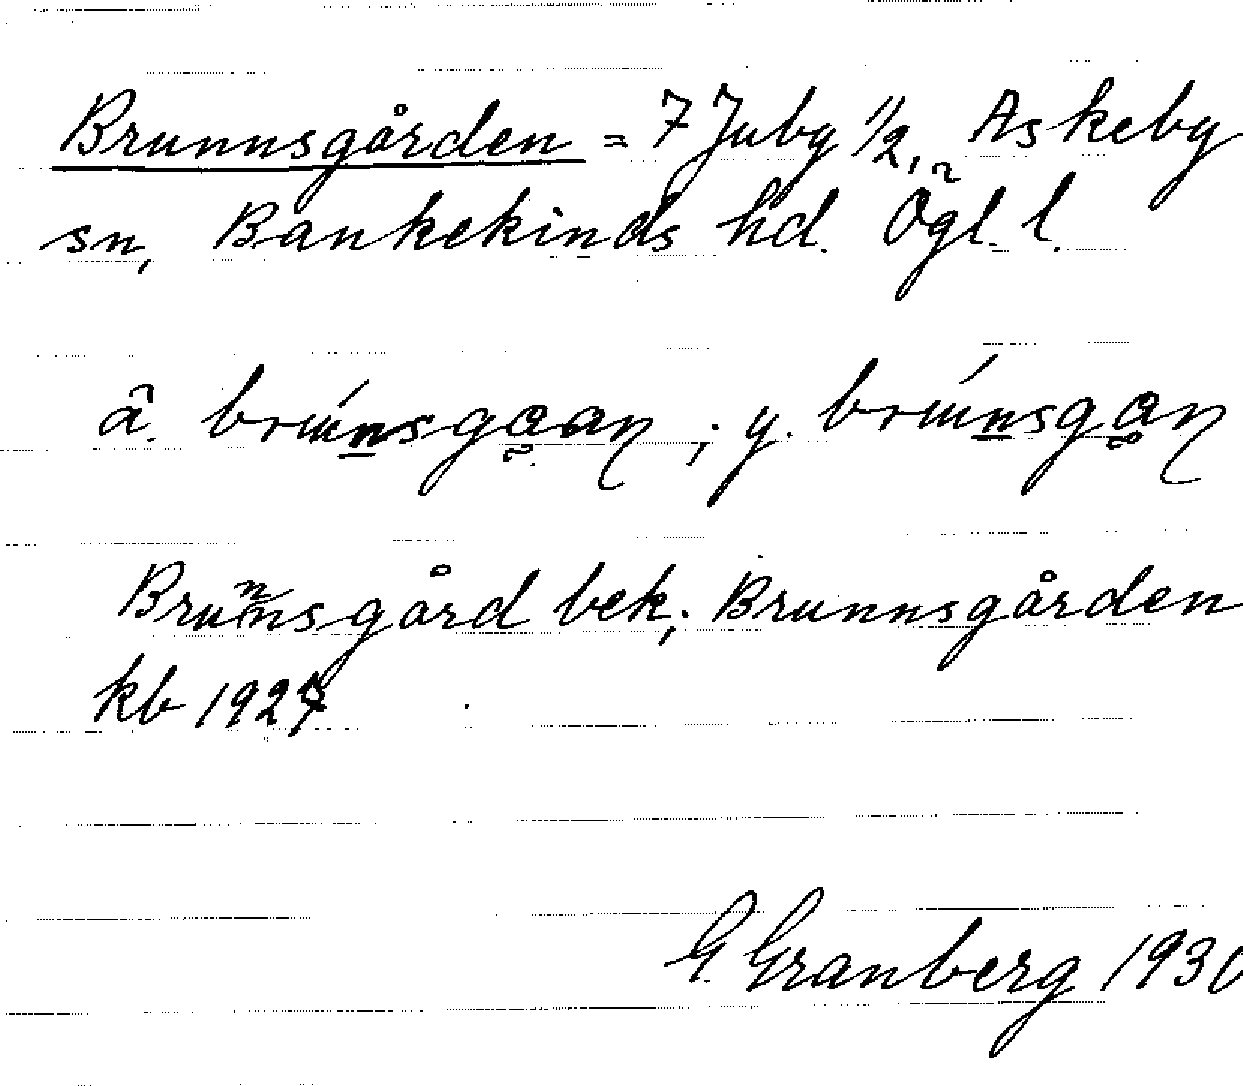 Brunnsgården = 7 Juby 1/2, Askeby
sn, Bankekinds hd. Ögl. l.
ä. brúnsgaan ; y. brúnsgan
Brunnsgård bek; Brunnsgården
kb 1927
G. Granberg 1930